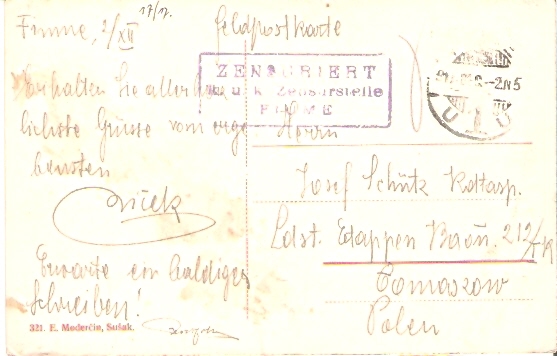 Fiume, 2/XII 17/12.
Feldpostkarte
ZENSURIERT
k. u. k. Zensurstelle
FIUME
Erhalten Sie allerherz
lichste Grüsse vom erge
bensten
Erwarte ein baldiges
Schreiben!
Herrn
Josef Schütz
Ldst. Etappen Baon. 212
Tomaszow
Polen
321. E. Mederčin, Sušak.